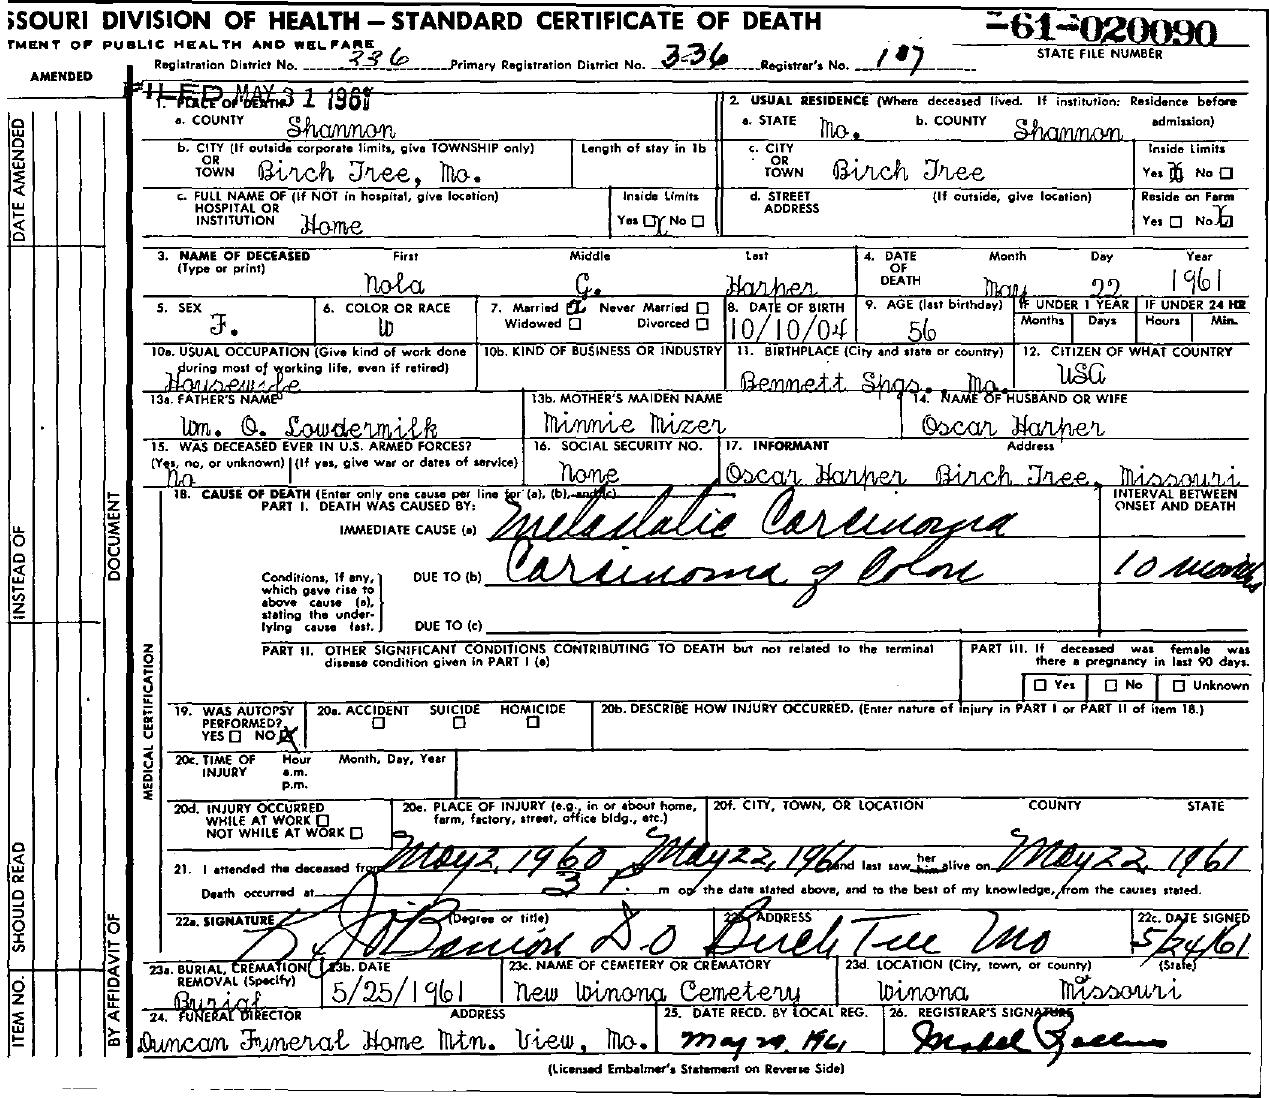 SSOURI DIVISION OF HEALTH — STANDARD CERTIFICATE OF DEATH
-61-020090
TMENT OF PUBLIC HEALTH AND WELFARE
STATE FILE NUMBER
Registration District No. 336 Primary Registration District No. 336 Registrar's No. 107
AMENDED
DATE AMENDED
INSTEAD OF
SHOULD READ
ITEM NO.
DOCUMENT
BY AFFIDAVIT OF
MEDICAL CERTIFICATION
FILED MAY 31 1961
1. PLACE OF DEATH
a. COUNTY Shannon
2. USUAL RESIDENCE (Where deceased lived. If institution: Residence before admission)
a. STATE Mo. b. COUNTY Shannon
b. CITY (If outside corporate limits, give TOWNSHIP only) OR TOWN Birch Tree, Mo.
Length of stay in 1b
c. CITY OR TOWN Birch Tree
Inside Limits
Yes X No
c. FULL NAME OF (If NOT in hospital, give location) HOSPITAL OR INSTITUTION Home
Inside Limits
Yes X No
d. STREET ADDRESS (If outside, give location)
Reside on Farm
Yes No X
3. NAME OF DECEASED (Type or print)
First Middle Last
Nola G. Harper
4. DATE OF DEATH
Month Day Year
May 22 1961
5. SEX F.
6. COLOR OR RACE W
7. Married X Never Married
Widowed Divorced
8. DATE OF BIRTH 10/10/04
9. AGE (last birthday) 56
IF UNDER 1 YEAR
Months Days
IF UNDER 24 HR
Hours Min.
10a. USUAL OCCUPATION (Give kind of work done during most of working life, even if retired) Housewife
10b. KIND OF BUSINESS OR INDUSTRY
11. BIRTHPLACE (City and state or country) Bennett Spgs. Mo.
12. CITIZEN OF WHAT COUNTRY USA
13a. FATHER'S NAME Wm. O. Lowdermilk
13b. MOTHER'S MAIDEN NAME Minnie Mizer
14. NAME OF HUSBAND OR WIFE Oscar Harper
15. WAS DECEASED EVER IN U.S. ARMED FORCES?
(Yes, no, or unknown) (If yes, give war or dates of service)
No
16. SOCIAL SECURITY NO. None
17. INFORMANT Address
Oscar Harper Birch Tree, Missouri
18. CAUSE OF DEATH (Enter only one cause per line for (a), (b), and (c)
PART I. DEATH WAS CAUSED BY:
INTERVAL BETWEEN ONSET AND DEATH
IMMEDIATE CAUSE (a) Metastatic Carcinoma
Conditions, if any, which gave rise to above cause (a), stating the under-lying cause last.
DUE TO (b) Carcinoma of Colon 10 months
DUE TO (c)
PART II. OTHER SIGNIFICANT CONDITIONS CONTRIBUTING TO DEATH but not related to the terminal disease condition given in PART I (a)
PART III. If deceased was female was there a pregnancy in last 90 days.
Yes No Unknown
19. WAS AUTOPSY PERFORMED?
YES NO X
20a. ACCIDENT SUICIDE HOMICIDE
20b. DESCRIBE HOW INJURY OCCURRED. (Enter nature of injury in PART I or PART II of item 18.)
20c. TIME OF INJURY Hour a.m. p.m. Month, Day, Year
20d. INJURY OCCURRED
WHILE AT WORK
NOT WHILE AT WORK
20e. PLACE OF INJURY (e.g., in or about home, farm, factory, street, office bldg., etc.)
20f. CITY, TOWN, OR LOCATION COUNTY STATE
21. I attended the deceased from May 2, 1960 May 22, 1961 and last saw her him alive on May 22, 1961
Death occurred at 3 P. m on the date stated above, and to the best of my knowledge, from the causes stated.
22a. SIGNATURE (Degree or title) D.O
22b. ADDRESS Birch Tree Mo
22c. DATE SIGNED 5/24/61
23a. BURIAL, CREMATION, REMOVAL (Specify) Burial
23b. DATE 5/25/1961
23c. NAME OF CEMETERY OR CREMATORY New Winona Cemetery
23d. LOCATION (City, town, or county) (State) Winona Missouri
24. FUNERAL DIRECTOR ADDRESS
Duncan Funeral Home Mtn. View, Mo.
25. DATE RECD. BY LOCAL REG. May 29, 1961
26. REGISTRAR'S SIGNATURE Mabel
(Licensed Embalmer's Statement on Reverse Side)